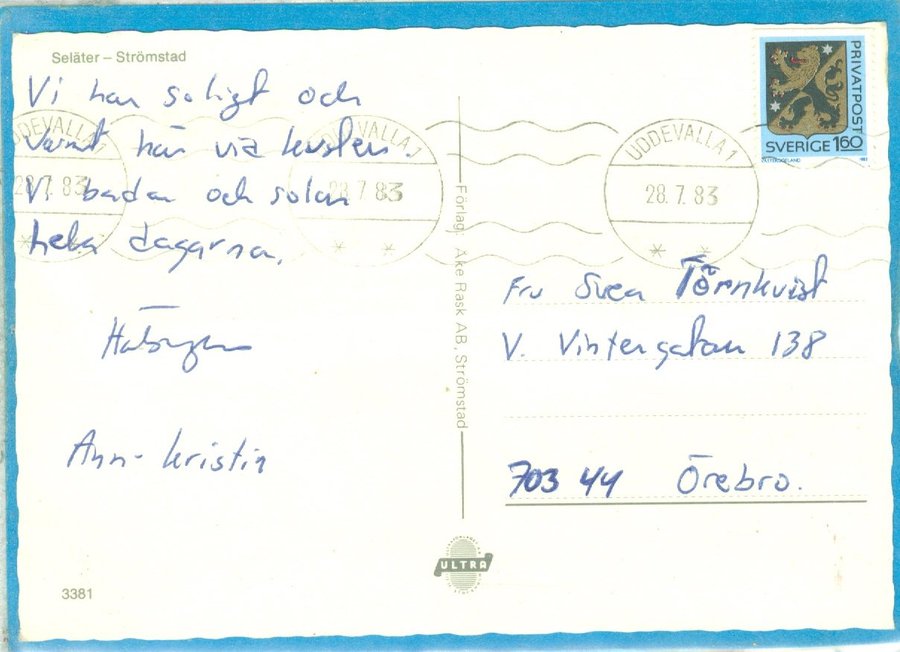 Seläter – Strömstad
Vi har soligt och
varmt här via kusten.
Vi badar och solar
hela dagarna.
Hälsningar
Ann-Kristin
3381
Förlag: Åke Rask AB, Strömstad
ULTRA
PRIVATPOST
SVERIGE 160
UDDEVALLA 1
28.7.83
UDDEVALLA 1
28.7.83
UDDEVALLA 1
28.7.83
Fru Svea Törnkvist
V. Vintergatan 138
703 44 Örebro.